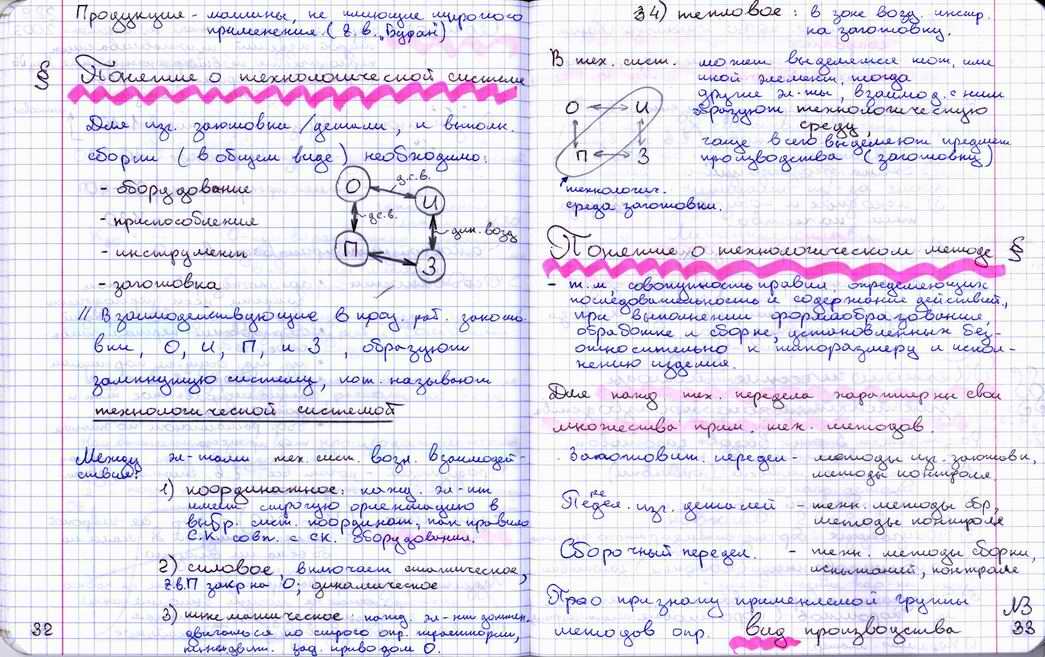 Продукция - машины, не имеющие широкого
применения. (Т. в. "Буран")
§ Понятие о технологической системе
Для изг. заготовки / детали, и выполн.
сборки (в общем виде) необходимо:
- оборудование
- приспособления
- инструмент
- заготовка
О д.с.в. И
дс.в. дин. возд
П З
// Взаимодействующие в проц. раб. загото-
вки, О, И, П, и З, образуют
замкнутую систему, кот. называют
технологической системой
Между эл-тами тех. сист. возн. взаимодей-
ствия:
1) координатное: кажд. эл-нт
имеет строгую ориентацию в
выбр. сист. координат, как правило
С.К. совп. с СК. оборудования.
2) силовое, включает статическое,
т.в. П закр на О; динамическое
3) кинематическое кажд. эл-нт должен
двигаться по строго опр. траектории,
зад. приводом О.
32
34) тепловое: в зоне возд. инстр.
на заготовку.
В тех. сист. может выделяться кот. или
иной элемент, тогда
другие эл-ты, взаимод. с ним
образуют технологическую
среду,
чаще всего выделяют предмет
производства (заготовку)
О И
П З
технологич.
среда заготовки.
Понятие о технологическом методе §
- т.м, совокупность правил, определяющих
последовательность и содержание действий,
при выполнении формообразования,
обработке и сборке, установленных без-
относительно к типоразмеру и испол-
нению изделия.
Для кажд тех. передела характерны свои
множества прим. тех. методов.
Заготовит. передел - методы изг. заготовки,
методы контроля
Передел. изг. деталей - техн. методы обр,
методы контроля
Сборочный передел. - техн. методы сборки,
испытаний, контроля
По признаку применяемой группы
методов опр. вид производства
№3
33